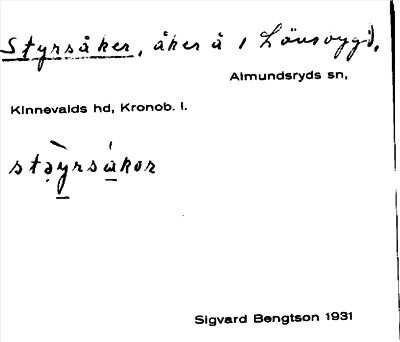 Styrsåker, åker å 1 Lönsrygd,
Almundsryds sn,
Kinnevalds hd, Kronob. l.
stəyrsåkər
Sigvard Bengtson 1931